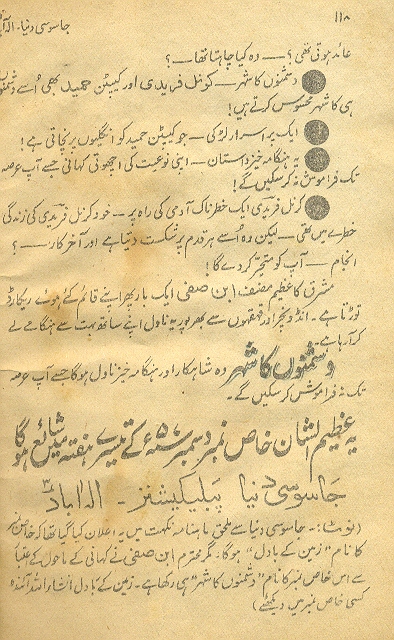 ۱۱۸
جاسوسی دنیا۔ الہ آباد
عائد ہوتی تھی؟ — وہ کیا چاہتا تھا —؟
دشمنوں کا شہر — کرنل فریدی اور کیپٹن حمید بھی اُسے دشمنوں
ہی کا شہر محسوس کرتے ہیں!
ایک پراسرار لڑکی — جو کیپٹن حمید کو انگلیوں پر نچاتی ہے!
یہ ہنگامہ خیز داستان — اپنی نوعیت کی اچھوتی کہانی جسے آپ عرصہ
تک فراموش نہ کر سکیں گے!
کرنل فریدی ایک خطرناک آدمی کی راہ پر — خود کرنل فریدی کی زندگی
خطرے میں تھی — لیکن وہ اُسے ہر قدم پر شکست دیتا ہے اور آخر کار —؟
انجام — آپ کو متحیر کر دے گا!
مشرق کا عظیم مصنف ابن صفی ایک بار پھر اپنے قائم کئے ہوئے ریکارڈ
توڑتا ہے۔ انڈونچر اور قہقہوں سے بھرپور یہ ناول اپنے ساتھ بہت سے ہنگامے لے
کر آ رہا ہے۔
دشمنوں کا شہر وہ شاہکار اور ہنگامہ خیز ناول ہوگا جسے آپ عرصہ
تک نہ فراموش کر سکیں گے۔
یہ عظیم الشان خاص نمبر دسمبر ۵۷ء کے تیسرے ہفتہ میں شائع ہوگا
جاسوسی دنیا پبلیکیشنز۔ الہ آباد ۳
(نوٹ:۔ جاسوسی دنیا سے ملحق ماہنامہ نکہت میں یہ اعلان کیا گیا تھا کہ خاص نمبر
کا نام "زمین کے بادل" ہوگا، مگر محترم ابن صفی نے کہانی کے ماحول کے اعتبار
سے اس خاص نمبر کا نام "دشمنوں کا شہر" ہی رکھا ہے۔ زمین کے بادل انشاء اللہ آئندہ
کسی خاص نمبر میں دیکھئے)